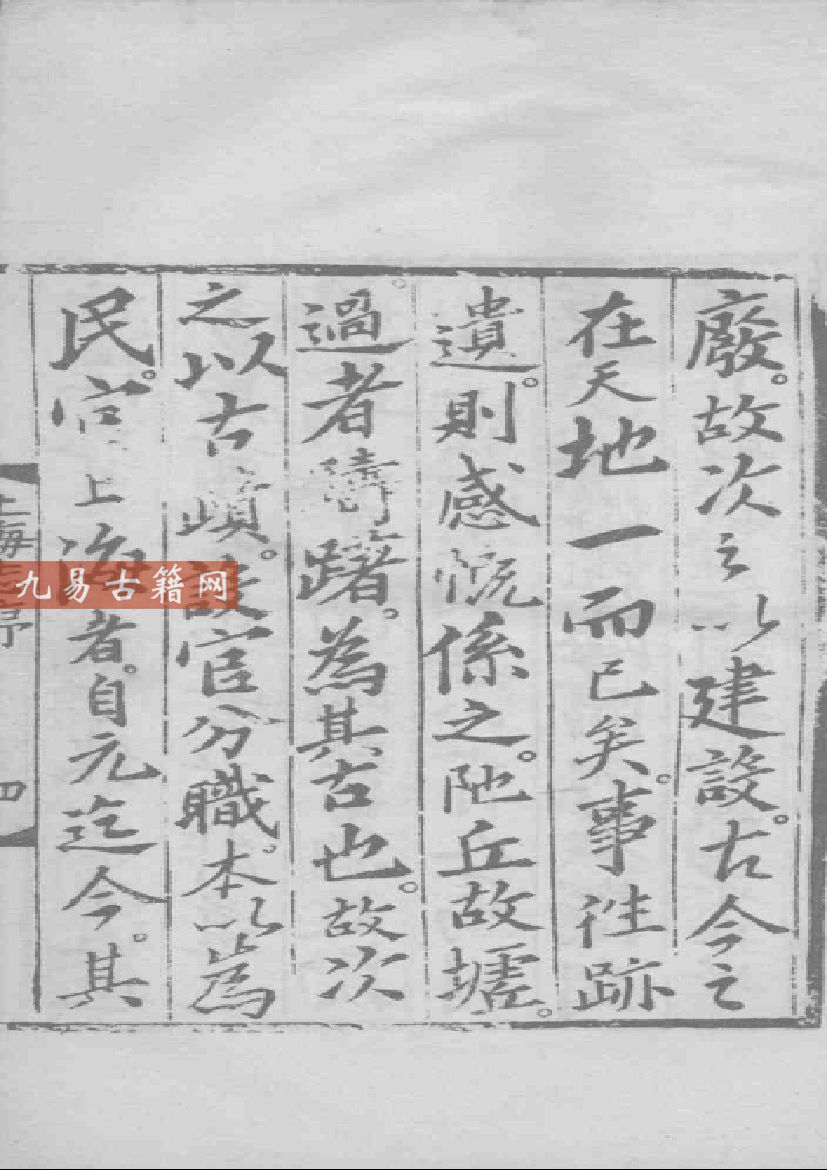 廢。故次之以建設。古今之
在天地一而已矣。事徃跡
遺。則感慨係之。阤丘故墟。
過者躊躇。為其古也。故次
之以古蹟。設官分職。本以為
民。官上海者。自元迄今。其
上海志序
四
九易古籍网